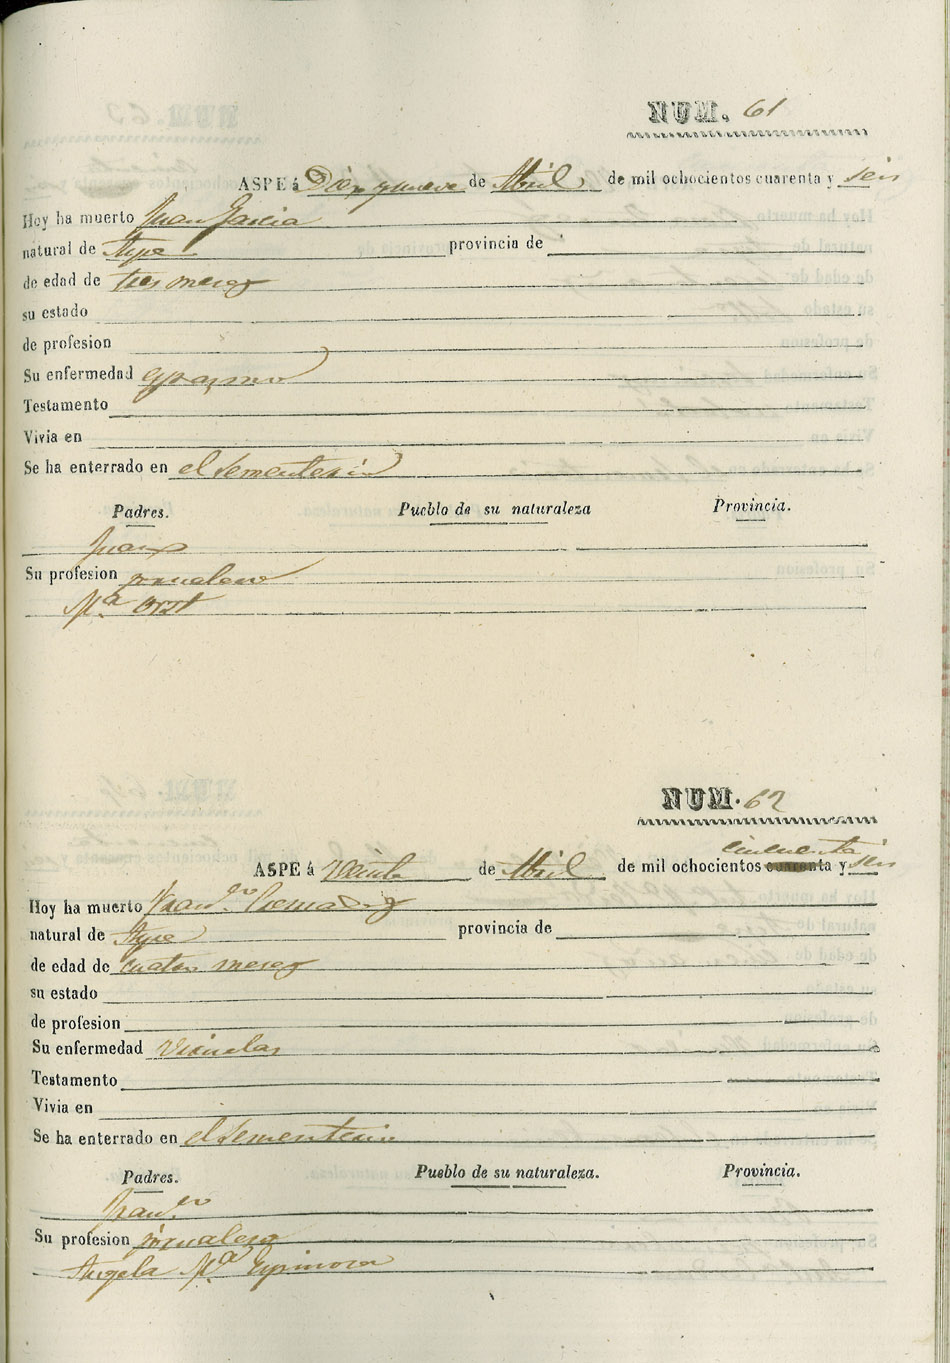 NUM. 61
ASPE á Diez y nueve de Abril de mil ochocientos cuarenta y seis
Hoy ha muerto Juan Garcia
natural de Aspe provincia de
de edad de tres meses
su estado
de profesion
Su enfermedad espasmo
Testamento
Vivia en
Se ha enterrado en el sementerio
Padres. Pueblo de su naturaleza Provincia.
Juan
Su profesion jornalero
Mª
NUM. 62
cincuenta
ASPE á Veinte de Abril de mil ochocientos cuarenta y seis
Hoy ha muerto Franco
natural de Aspe provincia de
de edad de cuatro meses
su estado
de profesion
Su enfermedad Viruelas
Testamento
Vivia en
Se ha enterrado en el sementerio
Padres. Pueblo de su naturaleza. Provincia.
Franco
Su profesion jornalero
Angela Mª Espinosa